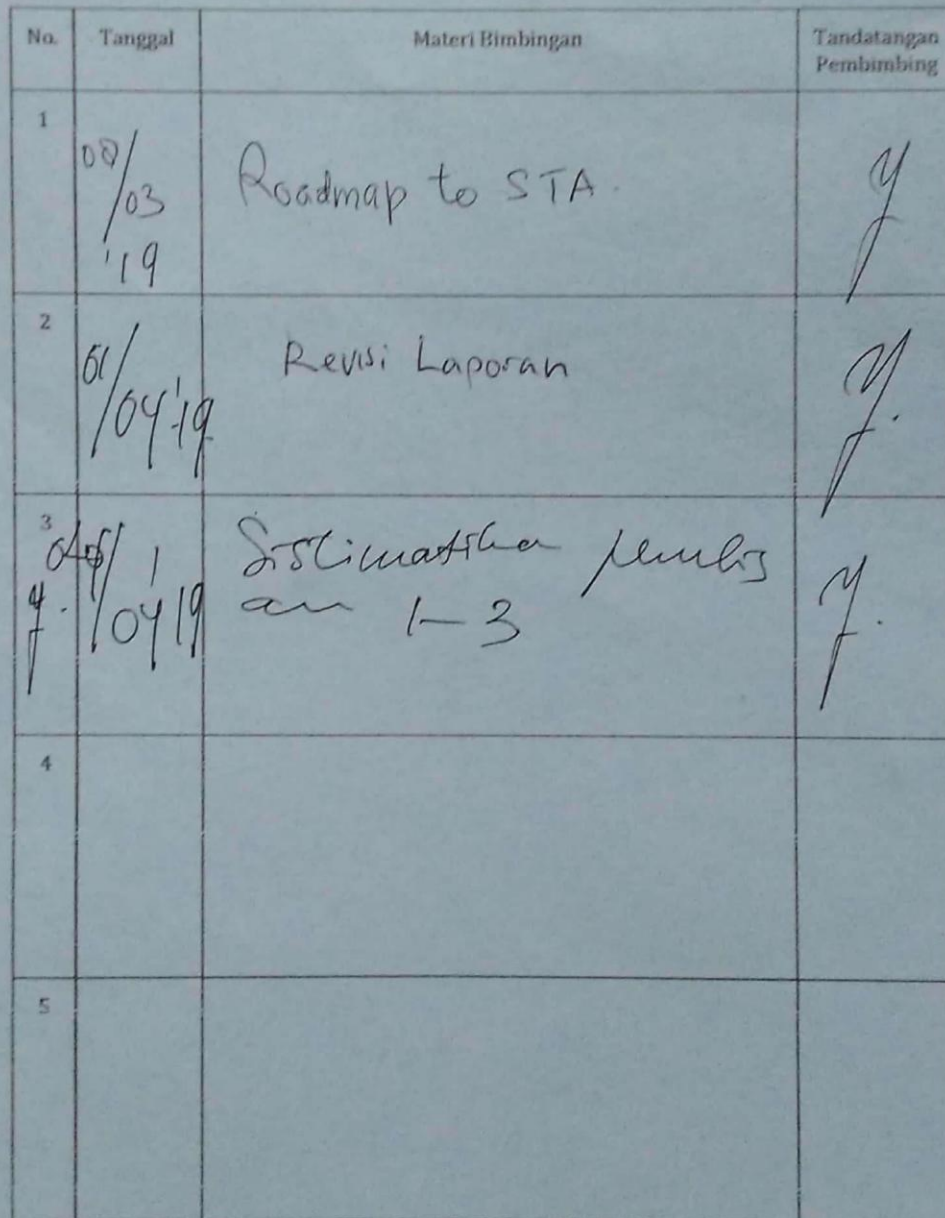 No. Tanggal Materi Bimbingan Tandatangan Pembimbing
1
08/03 '19 Roadmap to STA.
2
01/04 '19 Revisi Laporan
3
/04 '19 Sistimatika penulis
an 1-3
4
5